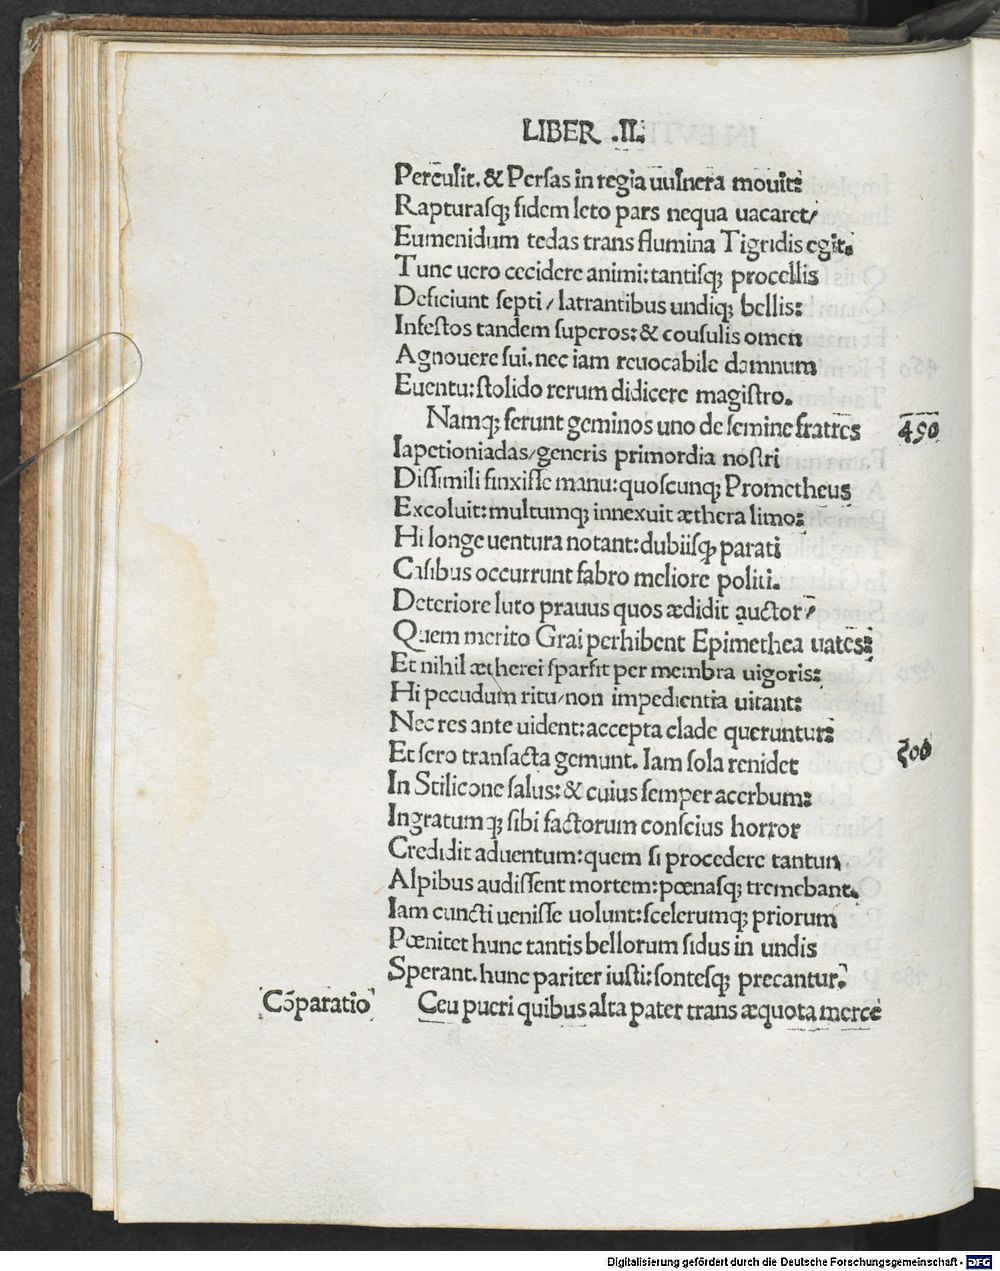 LIBER .II.
Perculit. & Persas in regia uulnera mouit:
Rapturasq; fidem leto pars nequa uacaret/
Eumenidum tedas trans flumina Tigridis egit.
Tunc uero cecidere animi: tantisq; procellis
Deficiunt septi/ latrantibus undiq; bellis:
Infestos tandem superos: & cousulis omen
Agnouere sui. nec iam reuocabile damnum
Euentu: stolido rerum didicere magistro.
Namq; ferunt geminos uno de semine fratres 490
Iapetioniadas/ generis primordia nostri
Dissimili finxisse manu: quoscunq; Prometheus
Excoluit: multumq; innexuit æthera limo:
Hi longe uentura notant: dubiisq; parati
Casibus occurrunt fabro meliore politi.
Deteriore luto prauus quos ædidit auctor/
Quem merito Grai perhibent Epimethea uates:
Et nihil ætherei sparsit per membra uigoris:
Hi pecudum ritu/ non impedientia uitant:
Nec res ante uident: accepta clade queruntur:
Et sero transacta gemunt. Iam sola renidet 500
In Stilicone salus: & cuius semper acerbum:
Ingratumq; sibi factorum conscius horror
Credidit aduentum: quem si procedere tantum
Alpibus audissent mortem: pœnasq; tremebant.
Iam cuncti uenisse uolunt: scelerumq; priorum
Pœnitet hunc tantis bellorum sidus in undis
Sperant. hunc pariter iusti: sontesq; precantur.
Cōparatio Ceu pueri quibus alta pater trans æquota mercē
Digitalisierung gefördert durch die Deutsche Forschungsgemeinschaft - DFG